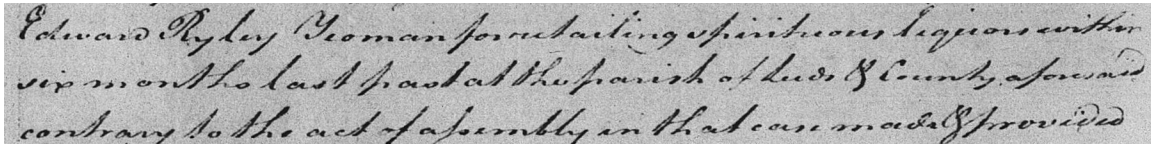 Edward Ryley Yeoman for retailing spirituous liquors within
six months last past at the parish of Leeds & County aforesaid
contrary to the act of assembly in that case made & provided